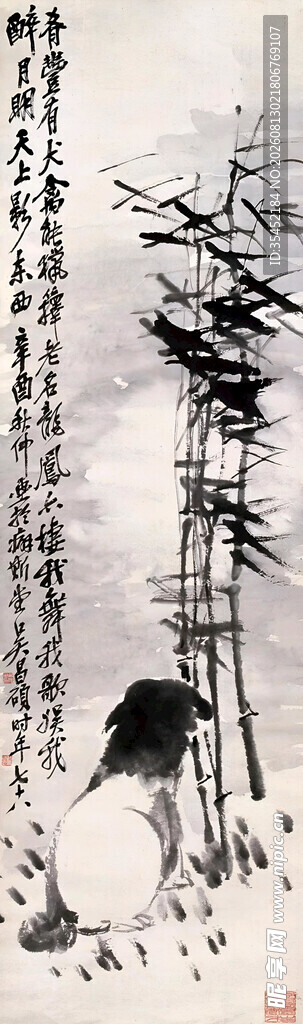 脊豐有犬禽能獵籜老名龍鳳亦棲我舞我歌猴我
醉月明天上影東西辛酉秋仲畫於癖斯堂吳昌碩時年七十八
ID:35452184 NO:20260813021806769107
昵享网
www.nipic.cn
昵享网